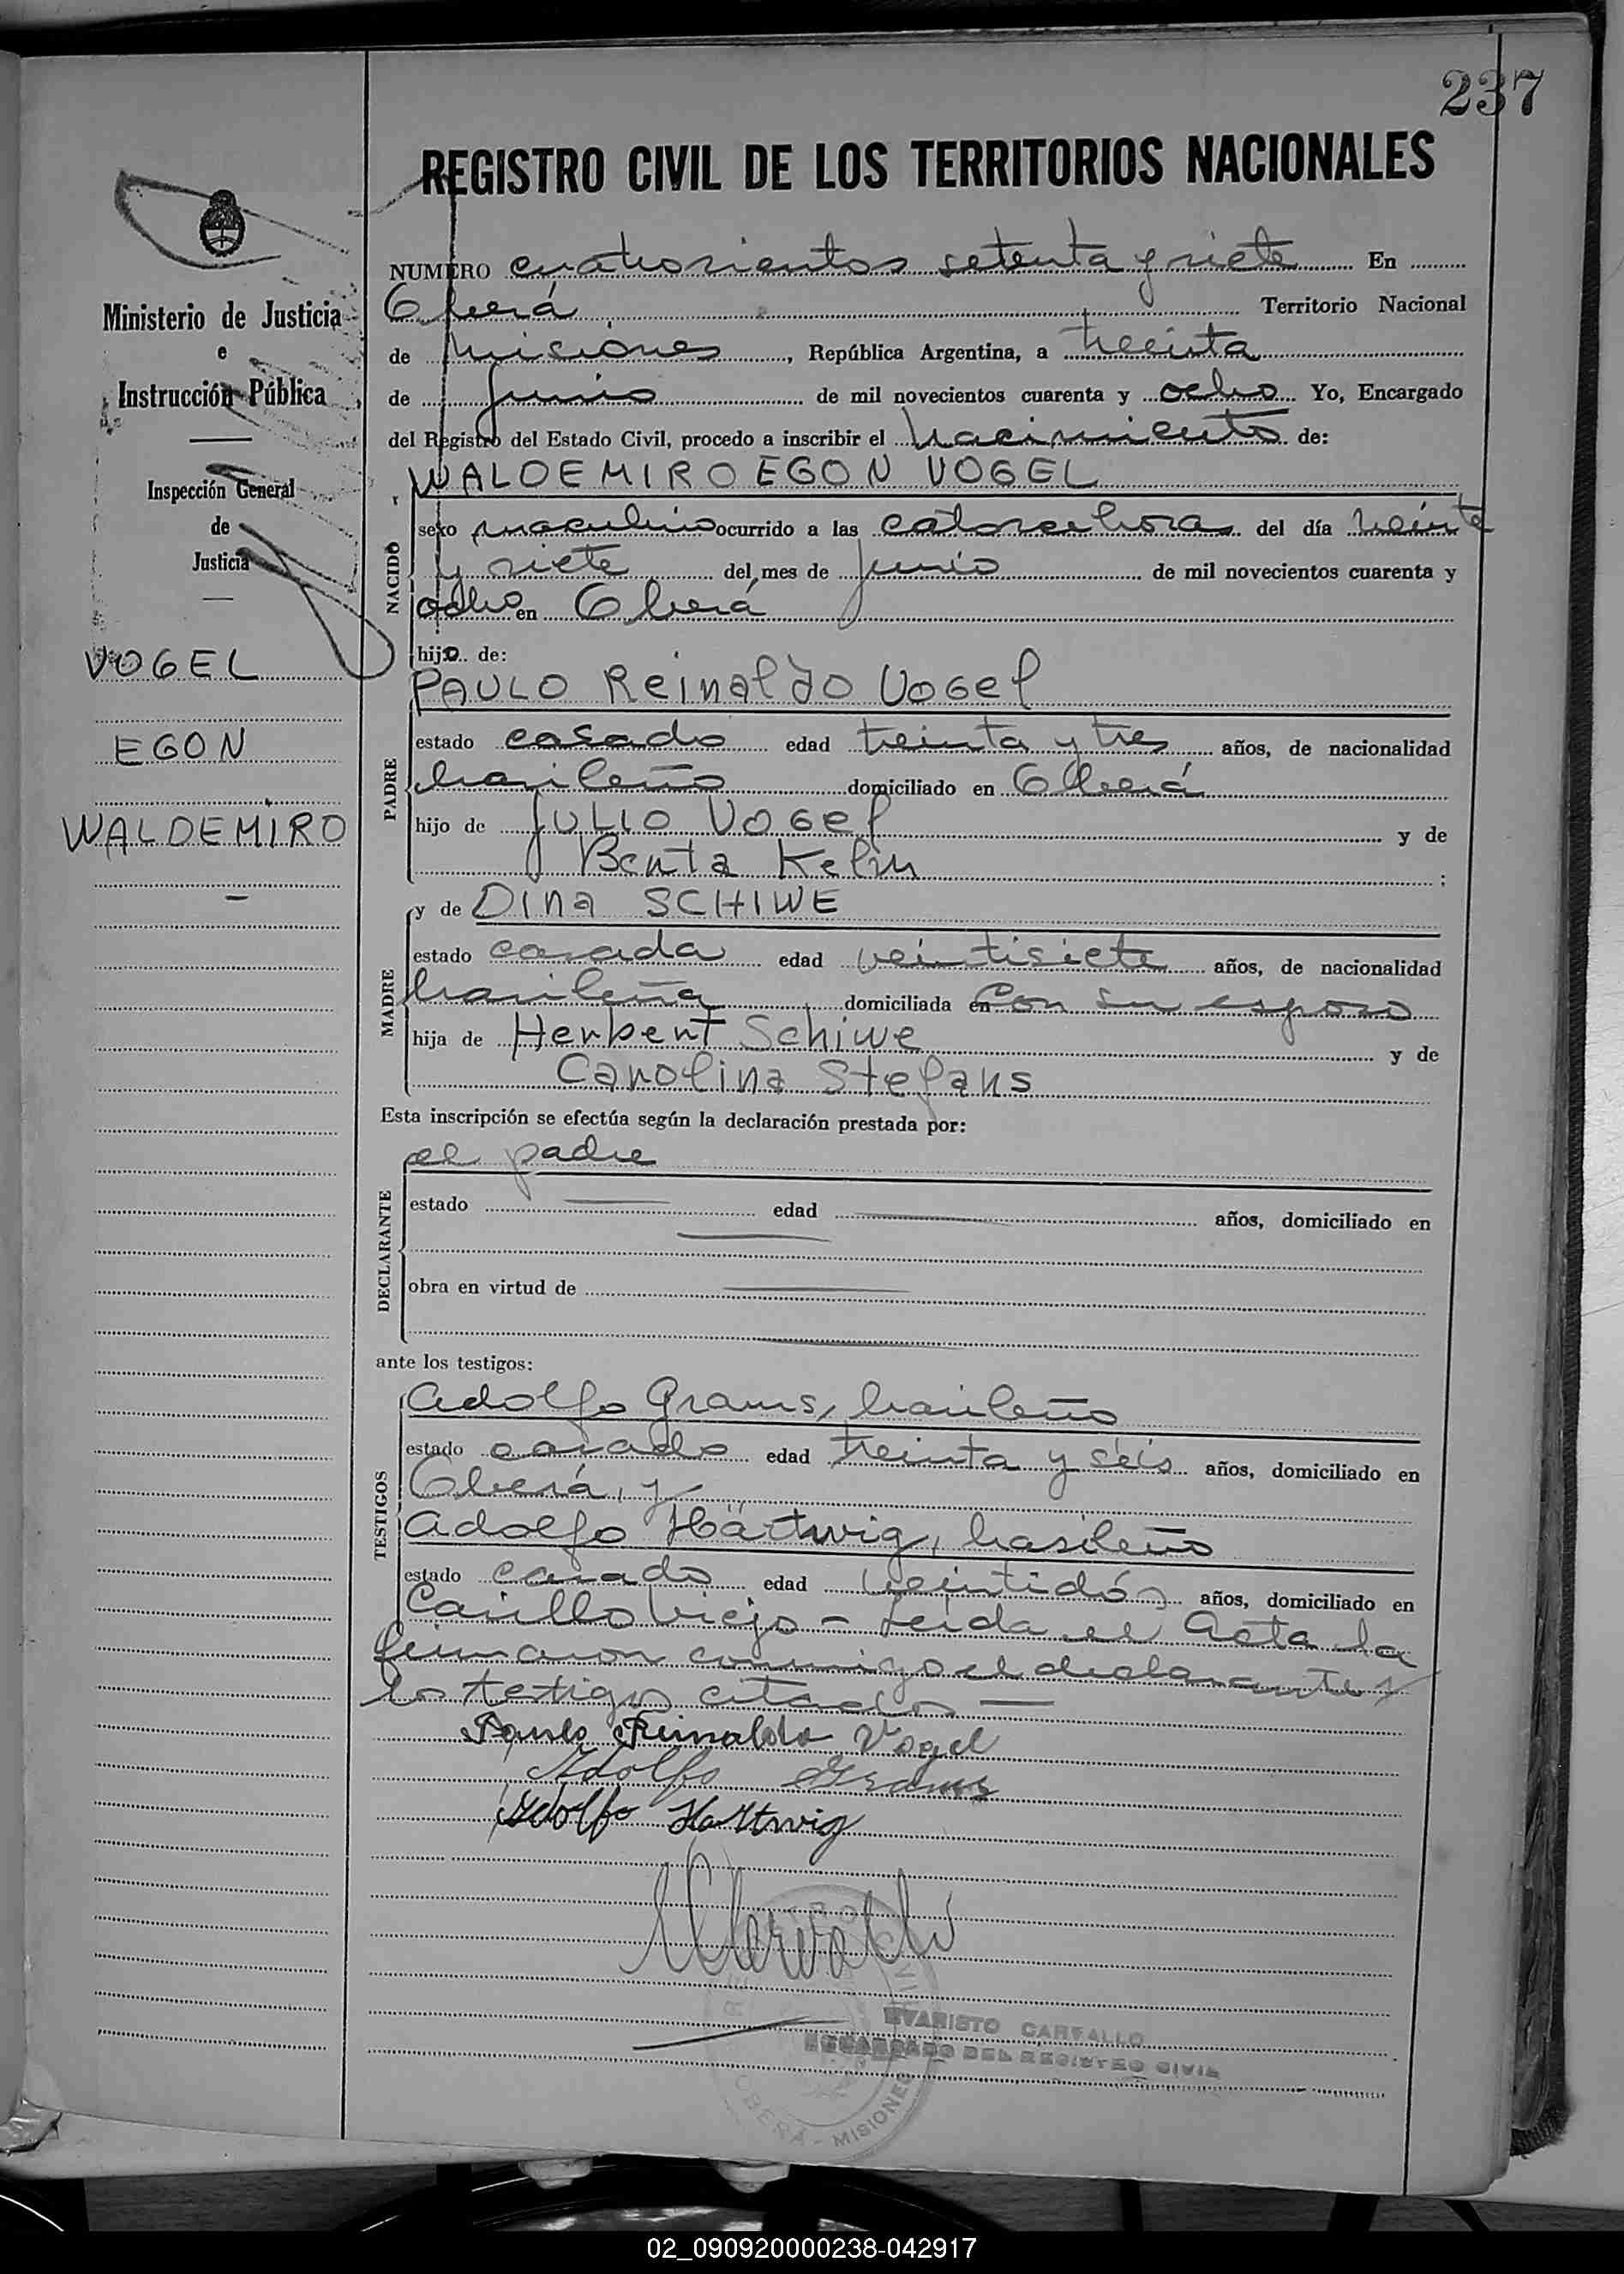 237
REGISTRO CIVIL DE LOS TERRITORIOS NACIONALES
Ministerio de Justicia
e
Instrucción Pública
Inspección General
de
Justicia
VOGEL
EGON
WALDEMIRO
NUMERO cuatrosientos setenta y siete En
Oberá Territorio Nacional
de Misiones, República Argentina, a treinta
de Junio de mil novecientos cuarenta y ocho Yo, Encargado
del Registro del Estado Civil, procedo a inscribir el nacimiento de:
WALDEMIRO EGON VOGEL
NACIDO
sexo masculino ocurrido a las catorce horas del día veinte
y siete del mes de Junio de mil novecientos cuarenta y
ocho en Oberá
hijo de:
PAULO Reinaldo Vogel
PADRE
estado casado edad treinta y tres años, de nacionalidad
brasileño domiciliado en Oberá
hijo de JULIO VOGEL y de
Benta Kelin;
y de Dina SCHIWE
MADRE
estado casada edad veintisiete años, de nacionalidad
brasileña domiciliada en Con su esposo
hija de Herbert Schiwe y de
Carolina Stefans
Esta inscripción se efectúa según la declaración prestada por:
el padre
DECLARANTE
estado edad años, domiciliado en
obra en virtud de
ante los testigos:
TESTIGOS
Adolfo Grams, brasileño
estado casado edad treinta y seis años, domiciliado en
Oberá, y
Adolfo Hartwig, brasileño
estado casado edad veintidós años, domiciliado en
Carillo Viejo - Leida el Acta la
firmaron conmigo el declarante y
los testigos citados —
Paulo Reinaldo Vogel
Adolfo Grams
Adolfo Hartwig
EVARISTO CARVALLO
ENCARGADO DEL REGISTRO CIVIL
OBERÁ - MISIONES
02_090920000238-042917